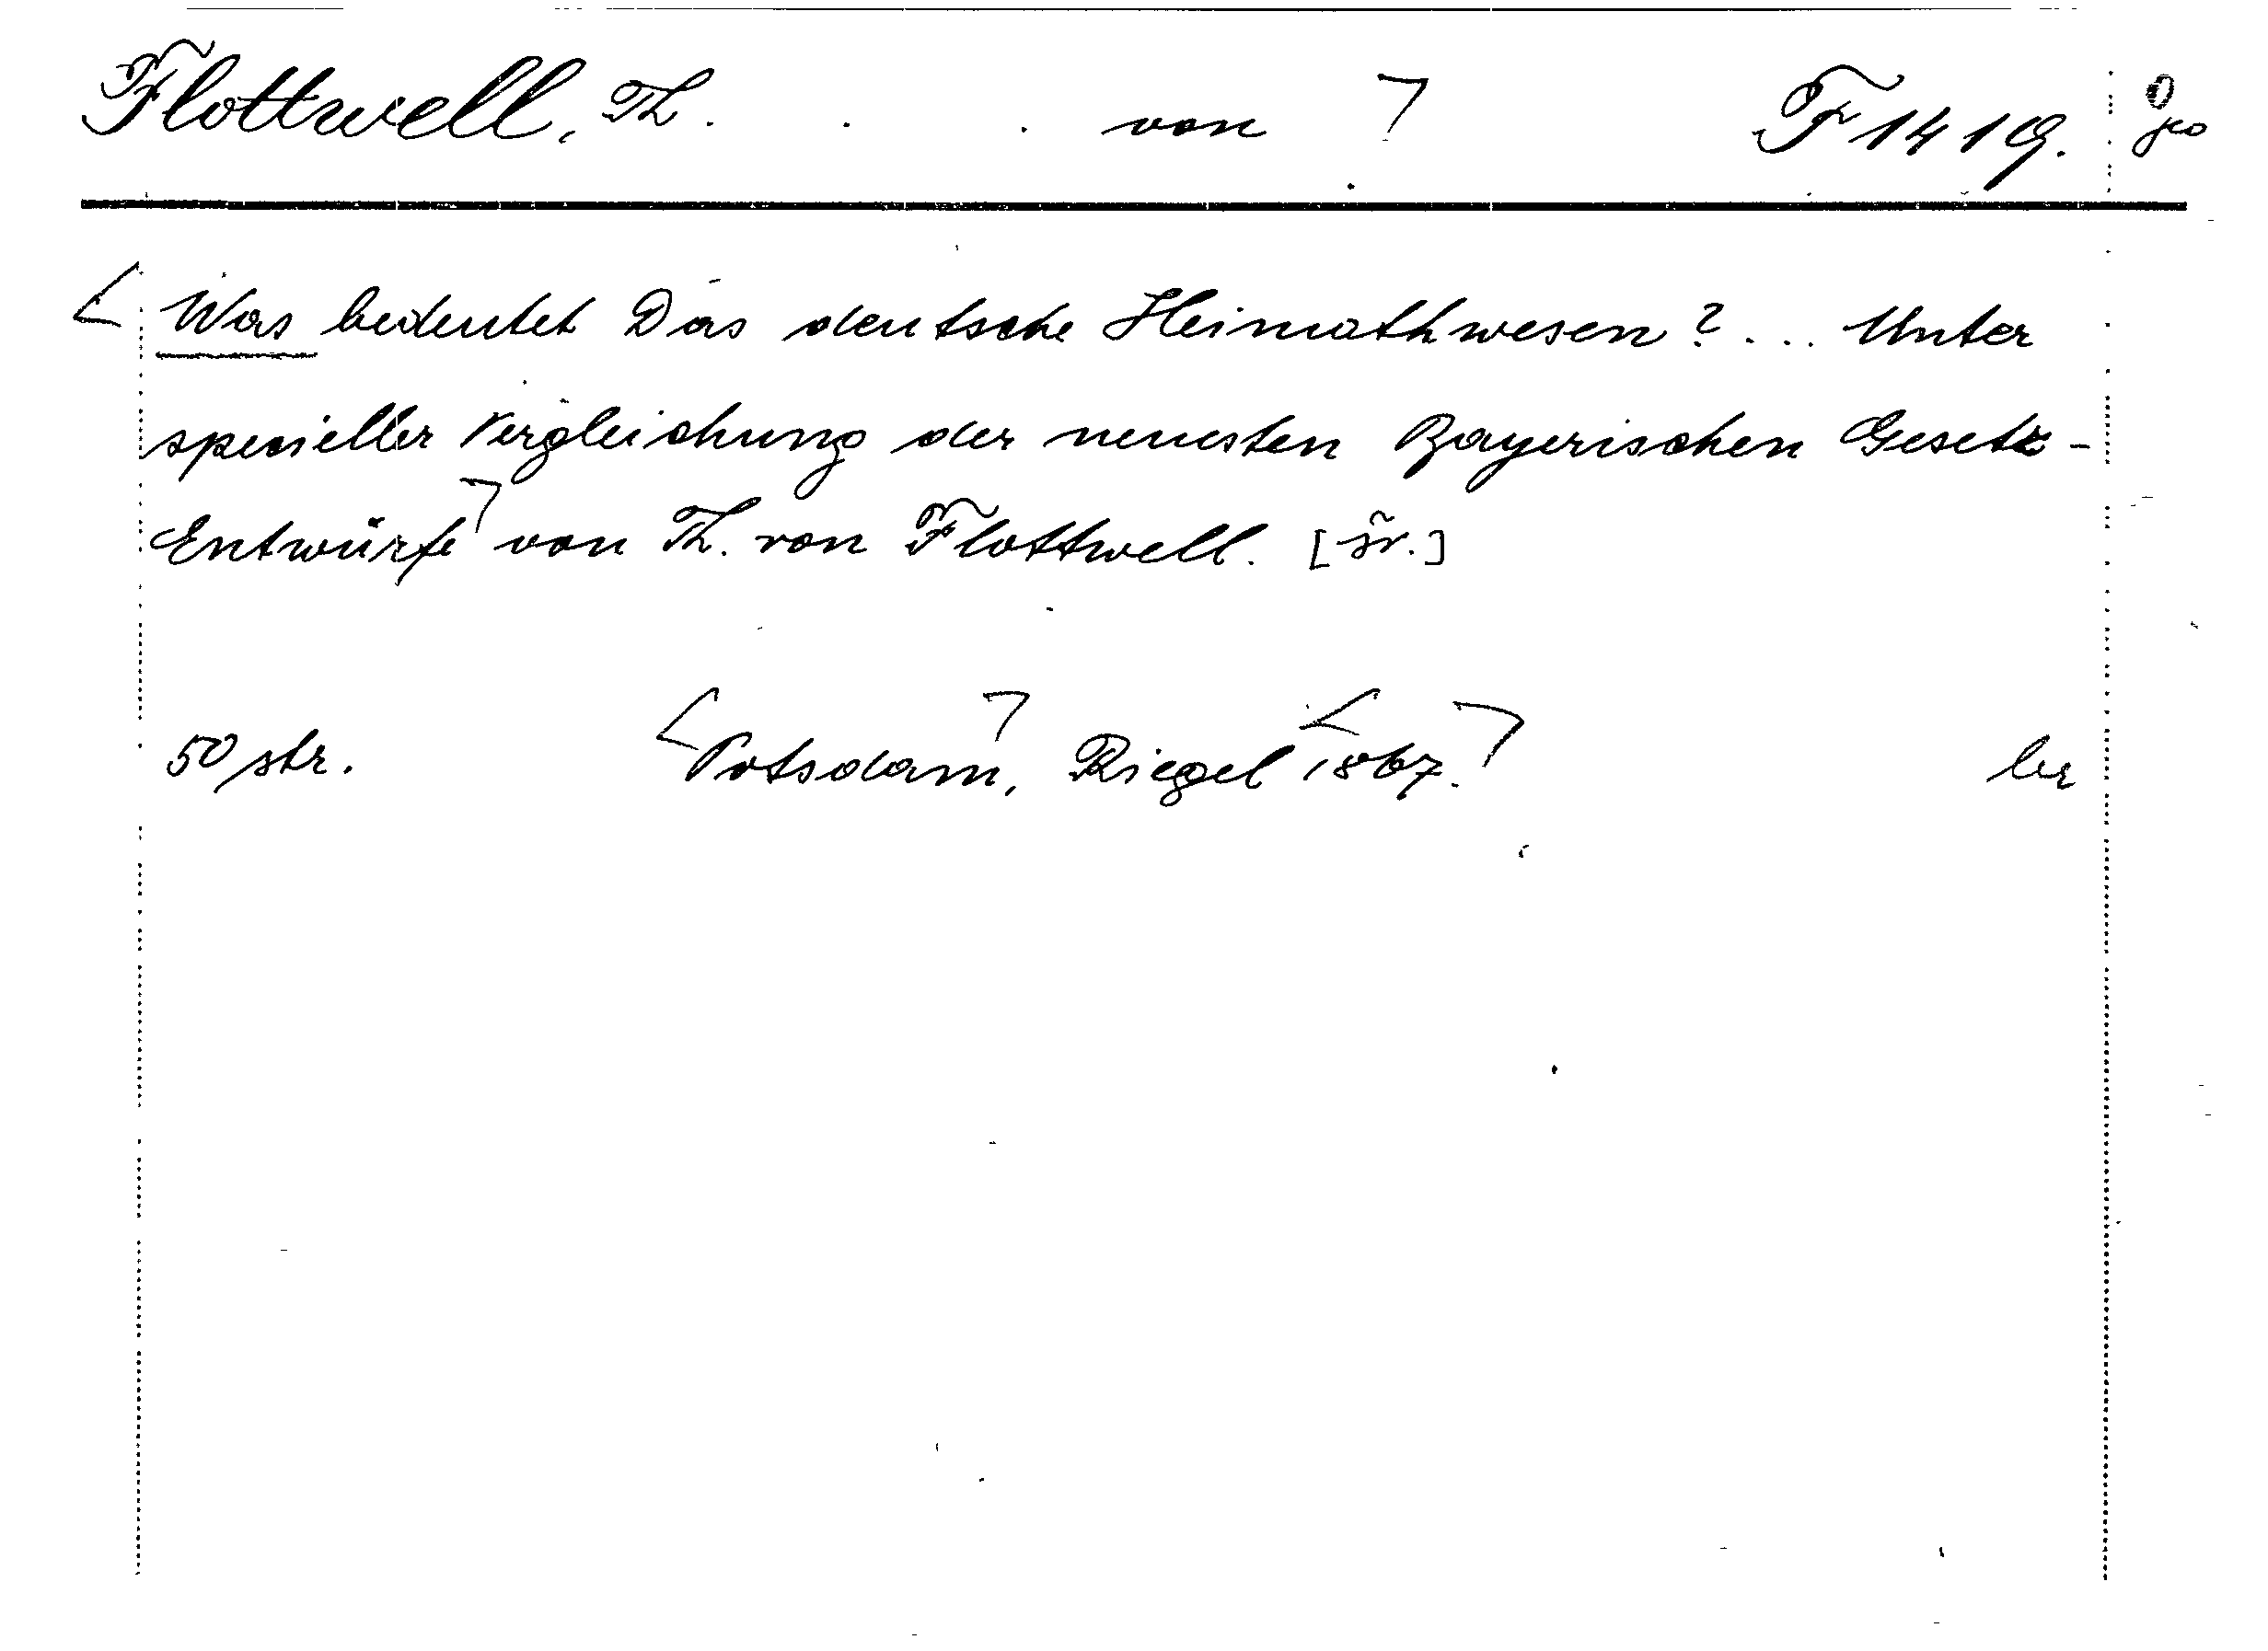 Flottwell, Th. von F 1419.
Was bedeutet Das deutsche Heimathwesen? ... Unter
specieller Vergleichung der neuesten Bayerischen Gesetz-
Entwürfe von Th. von Flottwell. [šv.]
50 str. Potsdam, Riegel 1867.